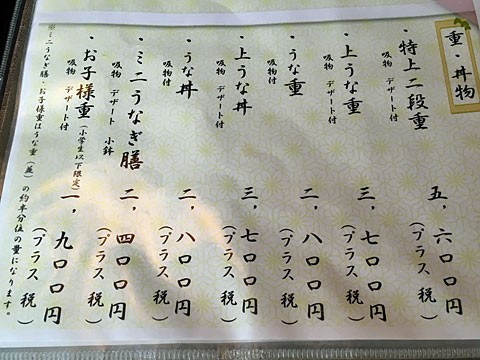 重・丼物
・特上二段重 五，六〇〇円
吸物 デザート付 （プラス税）
・上うな重 三，七〇〇円
吸物 デザート付 （プラス税）
・うな重 二，八〇〇円
吸物付 （プラス税）
・上うな丼 三，七〇〇円
吸物 デザート付 （プラス税）
・うな丼 二，八〇〇円
吸物付 （プラス税）
・ミニうなぎ膳 二，四〇〇円
吸物 デザート 小鉢 （プラス税）
・お子様重（小学生以下限定） 一，九〇〇円
吸物 デザート付 （プラス税）
※ミニうなぎ膳・お子様重はうな重（並）の約半分位の量になります。